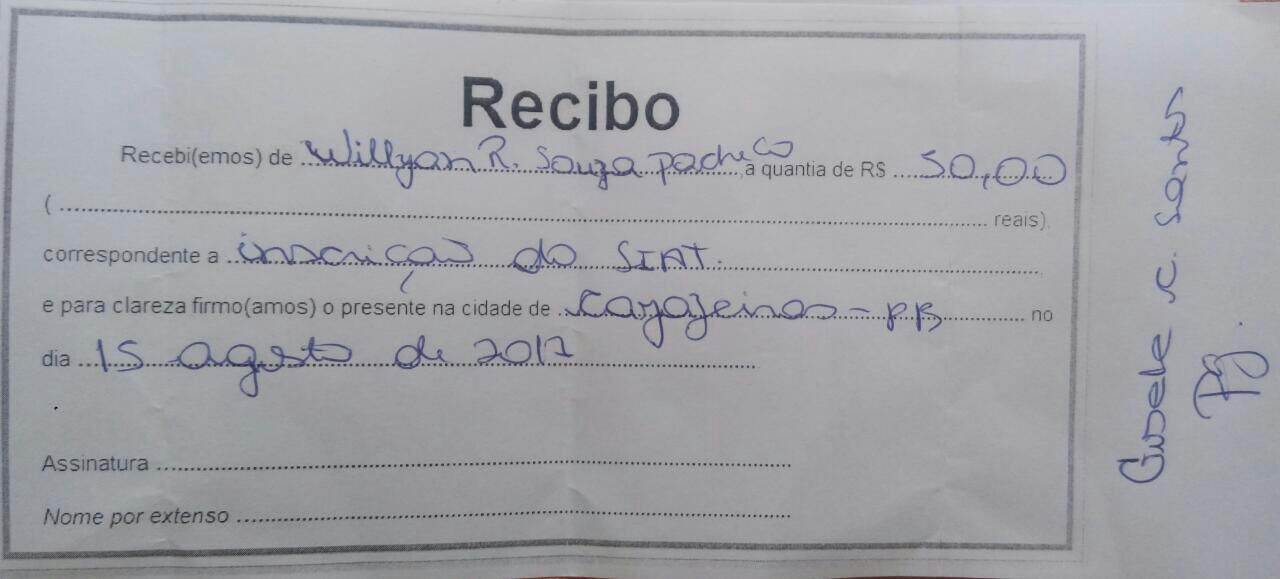 Recibo
Recebi(emos) de Willyan R. Souza pacheco, a quantia de R$ 50,00
( reais),
correspondente a inscrição do SIAT.
e para clareza firmo(amos) o presente na cidade de Cajazeiras - PB no
dia 15 agosto de 2017
Assinatura
Nome por extenso
Gisele C. Santos
Pg.